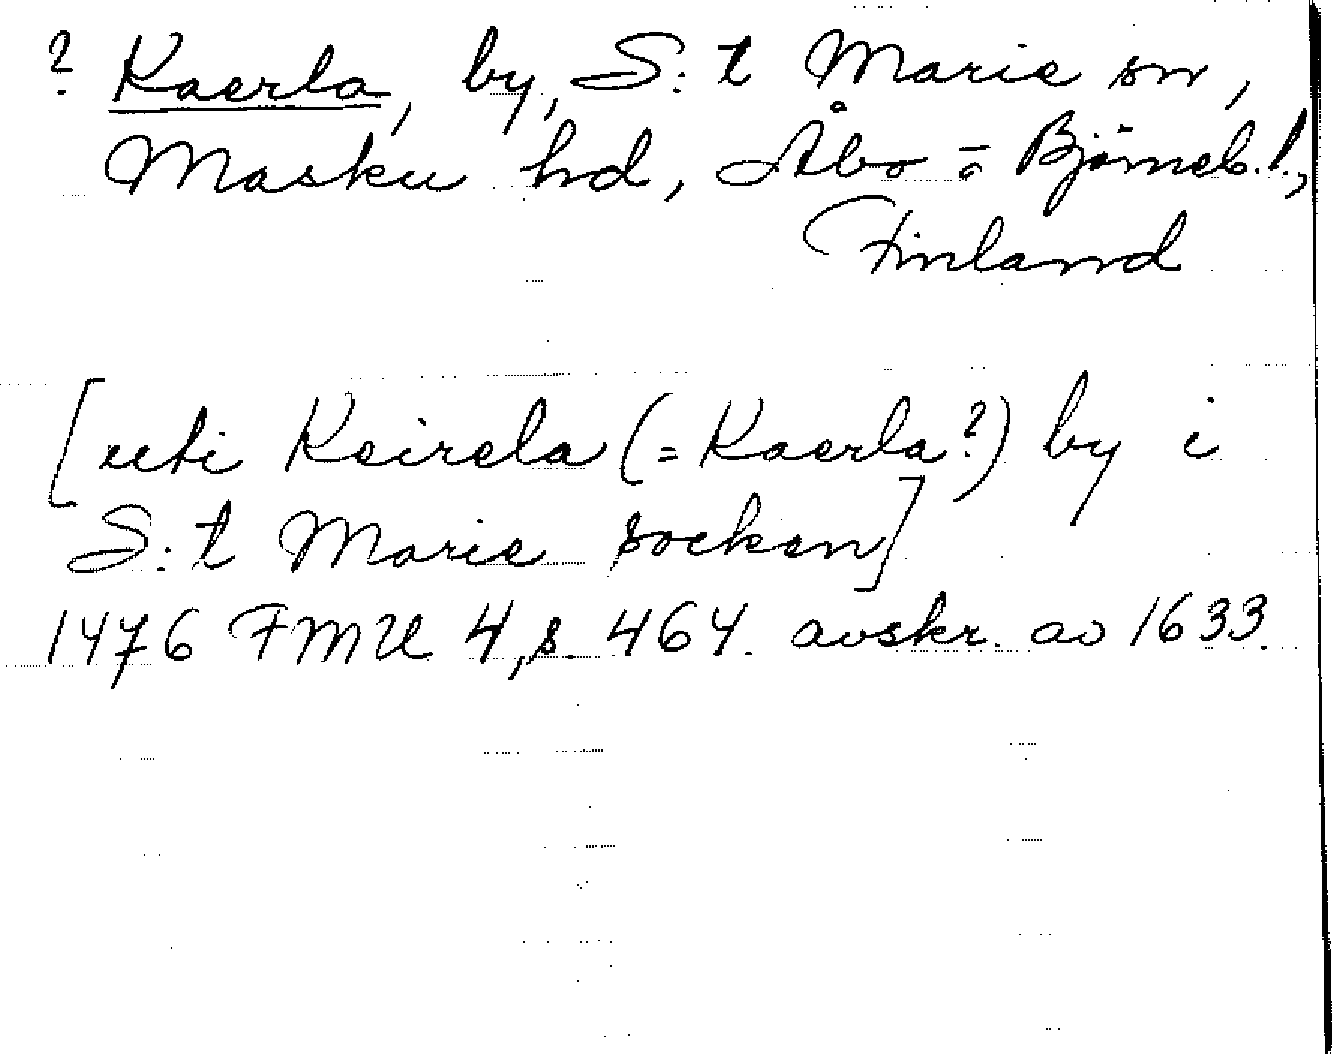 ? Kaerla, by, S:t Marie sn,
Masku hd, Åbo = Björneb. l.,
Finland
[uti Keirela (= Kaerla?) by i
S:t Marie socken]
1476 FMU 4, s. 464. avskr. av 1633.